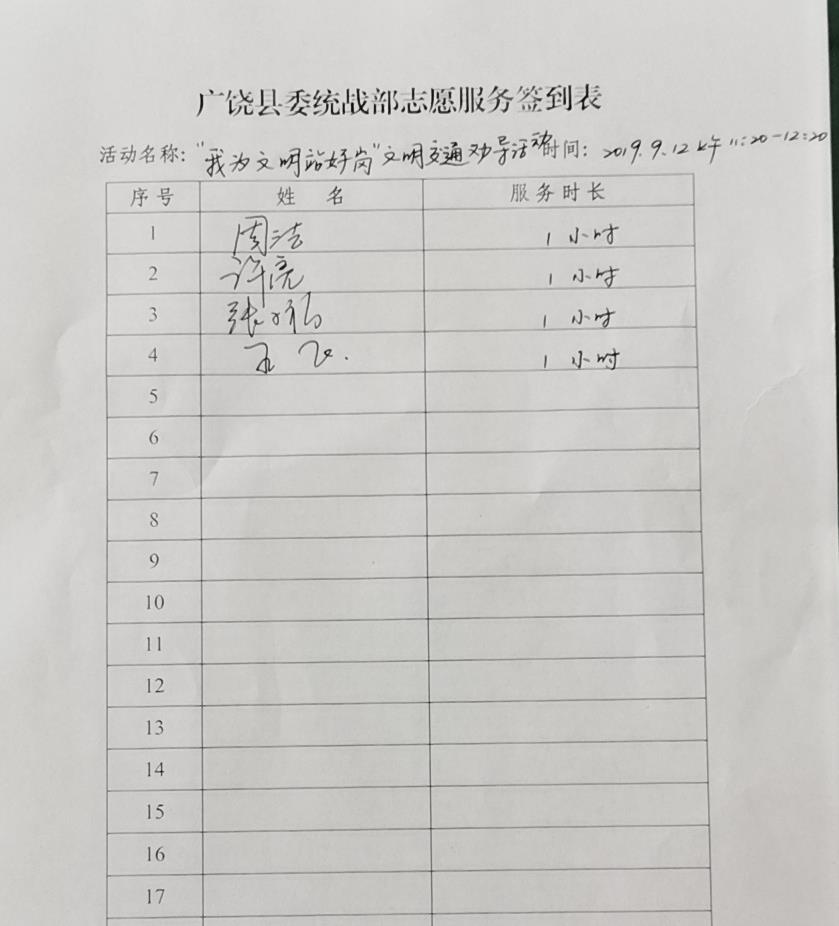 广饶县委统战部志愿服务签到表
活动名称：“我为文明站好岗”文明交通劝导活动 时间：2019.9.12 上午 11:20-12:20
序号 姓 名 服务时长
1 周洁 1 小时
2 许亮 1 小时
3 张 1 小时
4 王飞. 1 小时
5
6
7
8
9
10
11
12
13
14
15
16
17